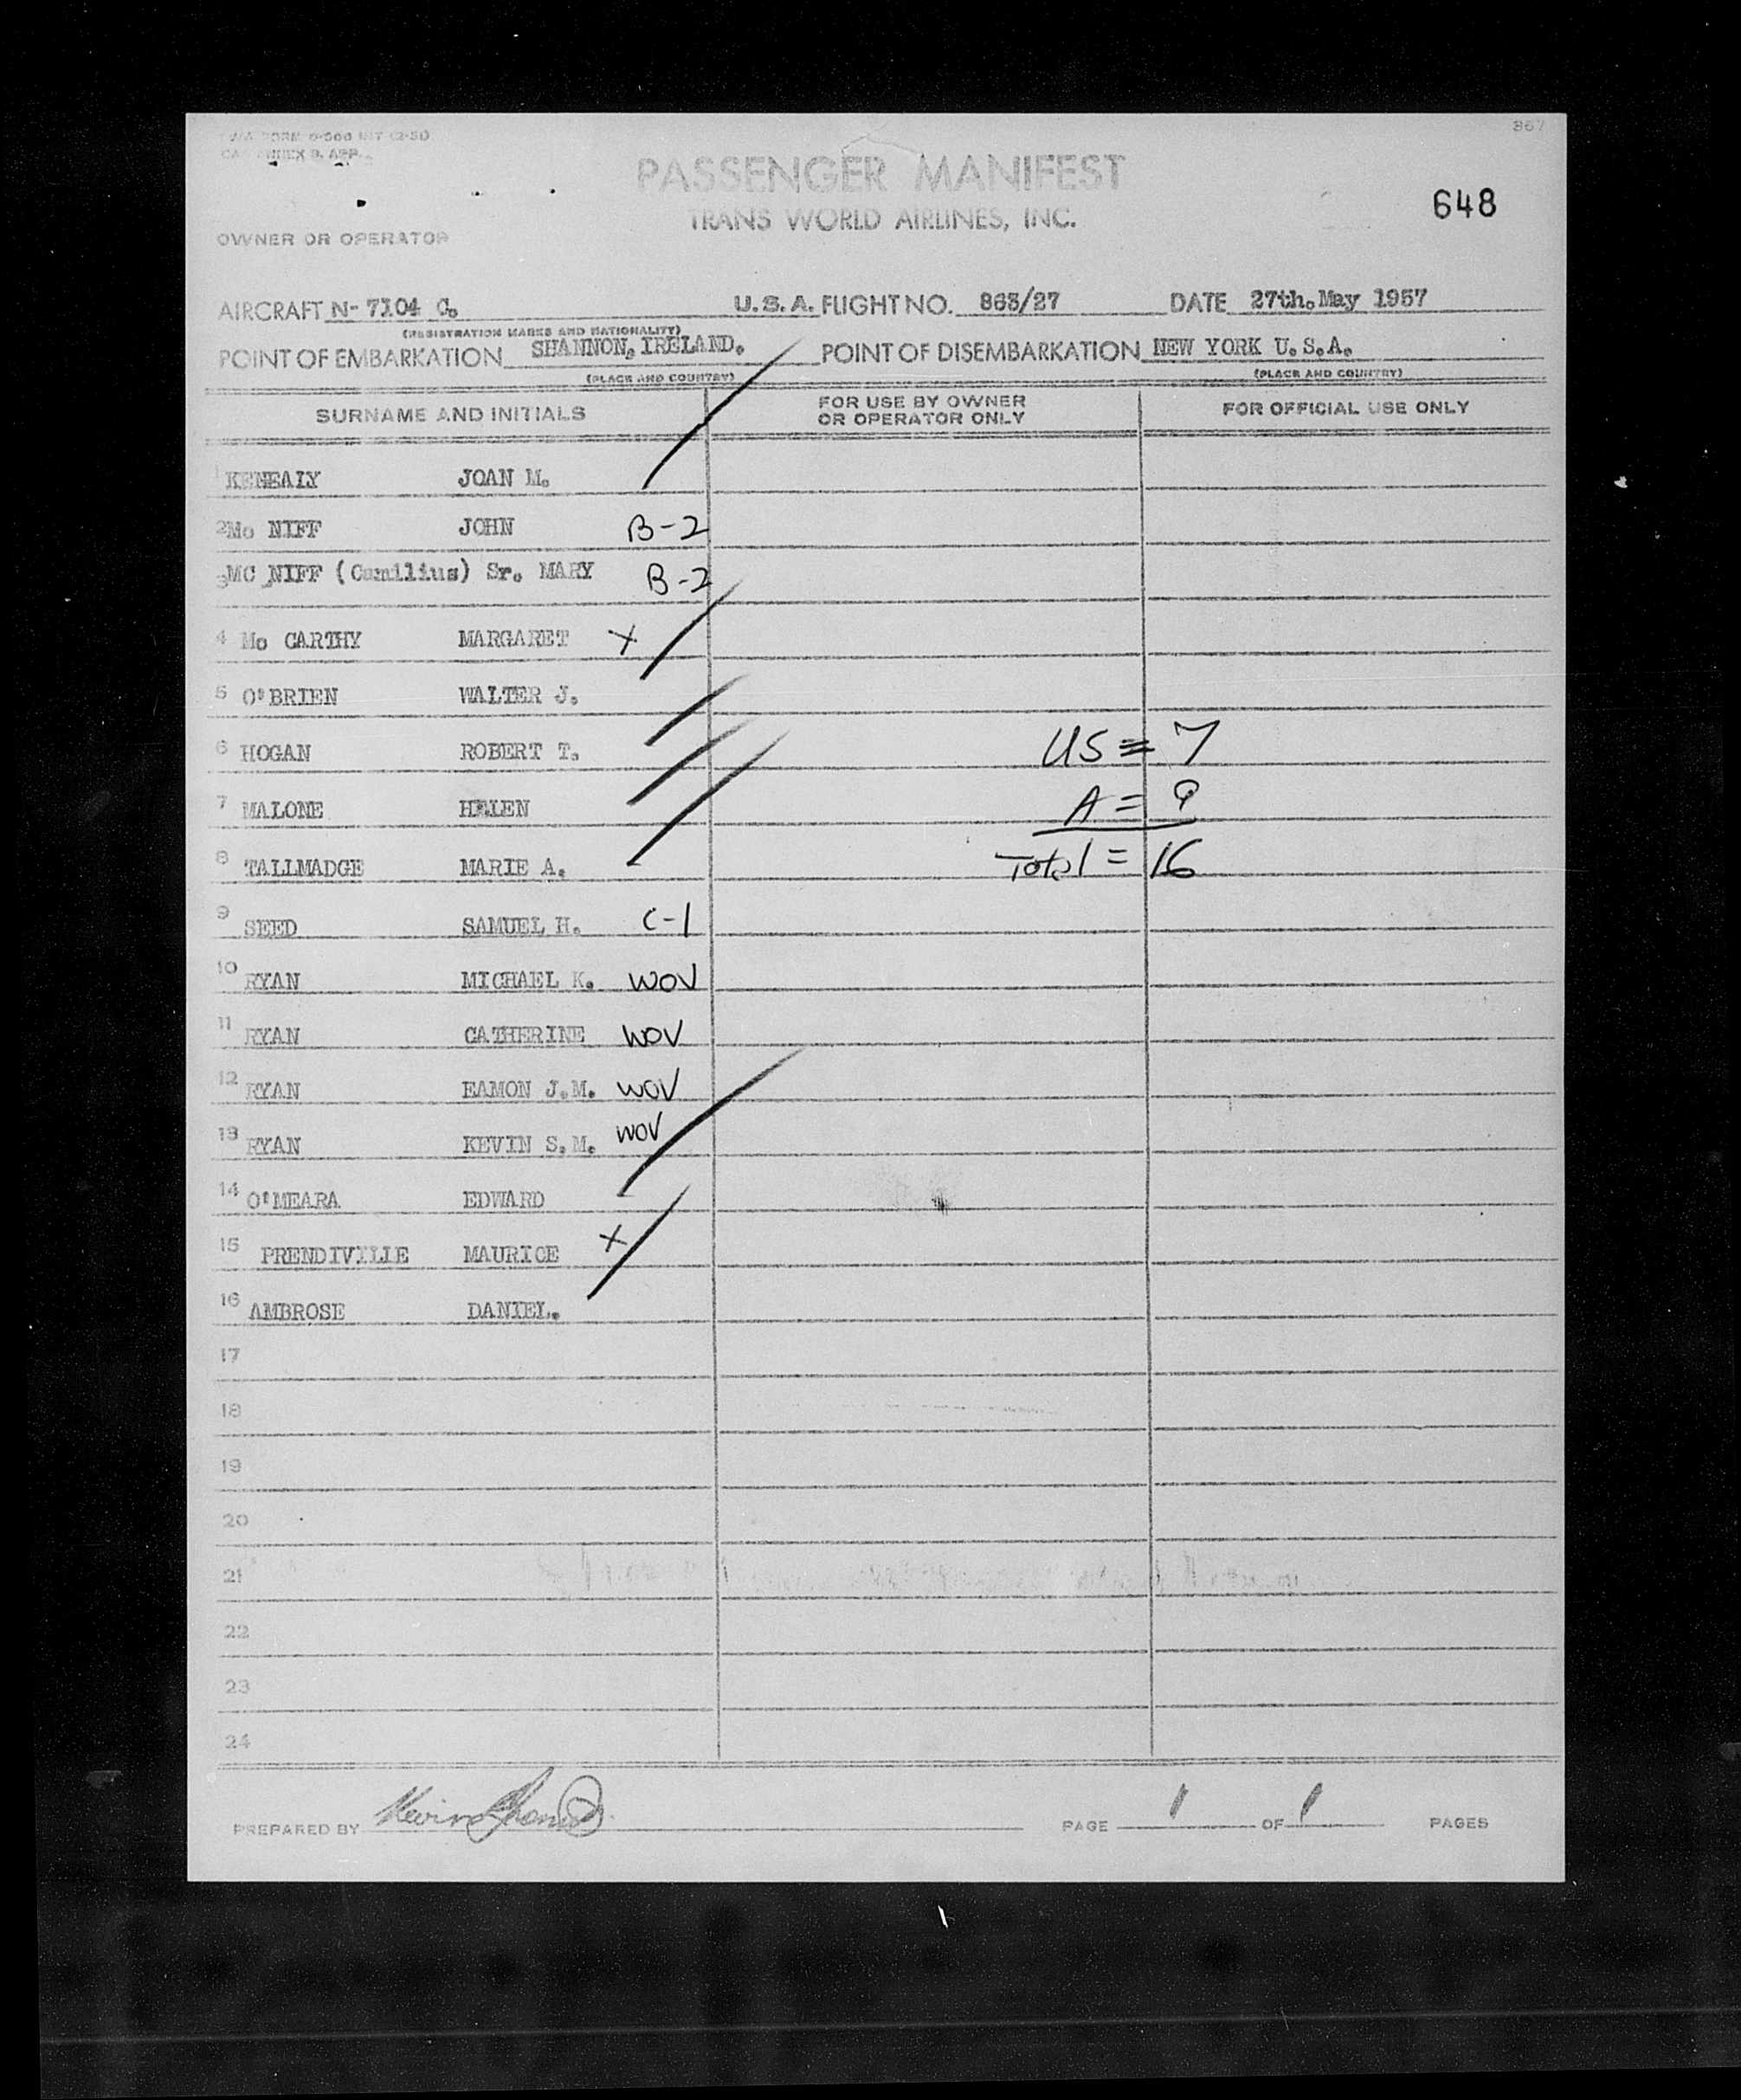 867
PASSENGER MANIFEST
648
TRANS WORLD AIRLINES, INC.
OWNER OR OPERATOR
AIRCRAFT N- 7104 C. U.S.A. FLIGHT NO. 863/27 DATE 27th.May 1957
(REGISTRATION MARKS AND NATIONALITY)
POINT OF EMBARKATION SHANNON, IRELAND. POINT OF DISEMBARKATION NEW YORK U.S.A.
(PLACE AND COUNTRY) (PLACE AND COUNTRY)
SURNAME AND INITIALS FOR USE BY OWNER OR OPERATOR ONLY FOR OFFICIAL USE ONLY
1 KENEALY JOAN M.
2 Mc NIFF JOHN B-2
3 MC NIFF (Camilius) Sr. MARY B-2
4 Mc CARTHY MARGARET X
5 O'BRIEN WALTER J.
6 HOGAN ROBERT T. US = 7
7 MALONE HELEN A = 9
8 TALLMADGE MARIE A. Total = 16
9 SEED SAMUEL H. C-1
10 RYAN MICHAEL K. WOV
11 RYAN CATHERINE WOV
12 RYAN EAMON J.M. WOV
13 RYAN KEVIN S.M. WOV
14 O'MEARA EDWARD
15 PRENDIVILLE MAURICE X
16 AMBROSE DANIEL.
17
18
19
20
21
22
23
24
PREPARED BY Kevin PAGE 1 OF 1 PAGES